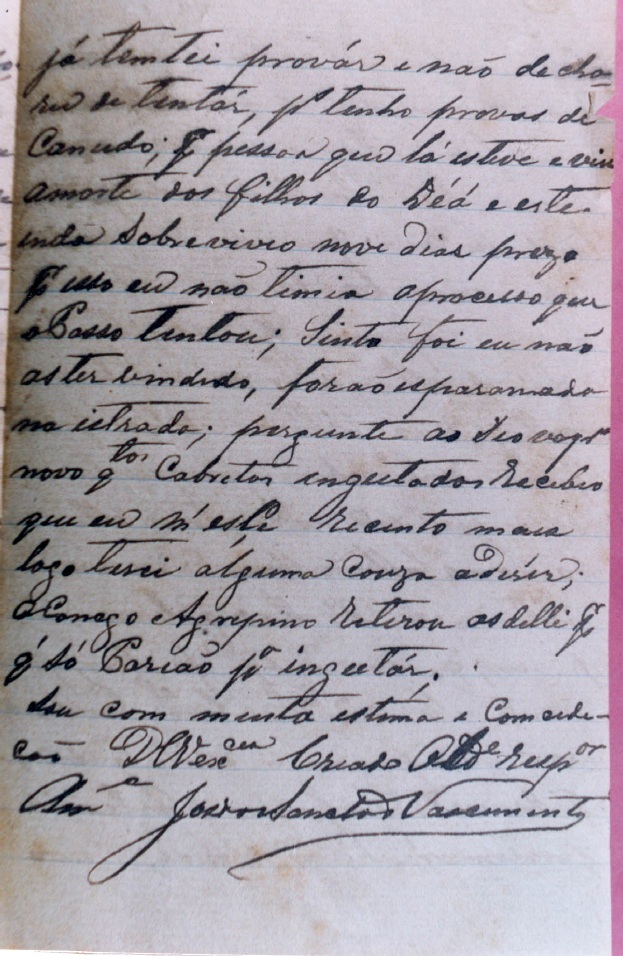 já temtei provár e não decha-
rei de tentár, pª tenho provas de
Canudo; pessoa que lá esteve e viu
amorte dos filhos do Déá e este
inda Sobreviveo nove dias prezo
isso eu não timia aprocesso que
o Passo tentou; Sinto foi eu não
aster vindido, forão esparamada
na istrada; pergunte ao Deo
novo qtos Cabritos ingeitados Recebeo
que eu n'este Recinto mais
logo terei alguma couza adizér;
o Conego Agripino Retirou as delle
q' só Parião pª ingeitár.
Sou com muita estima e Comcede-
cão DVExcea Criado e respor
Amº José